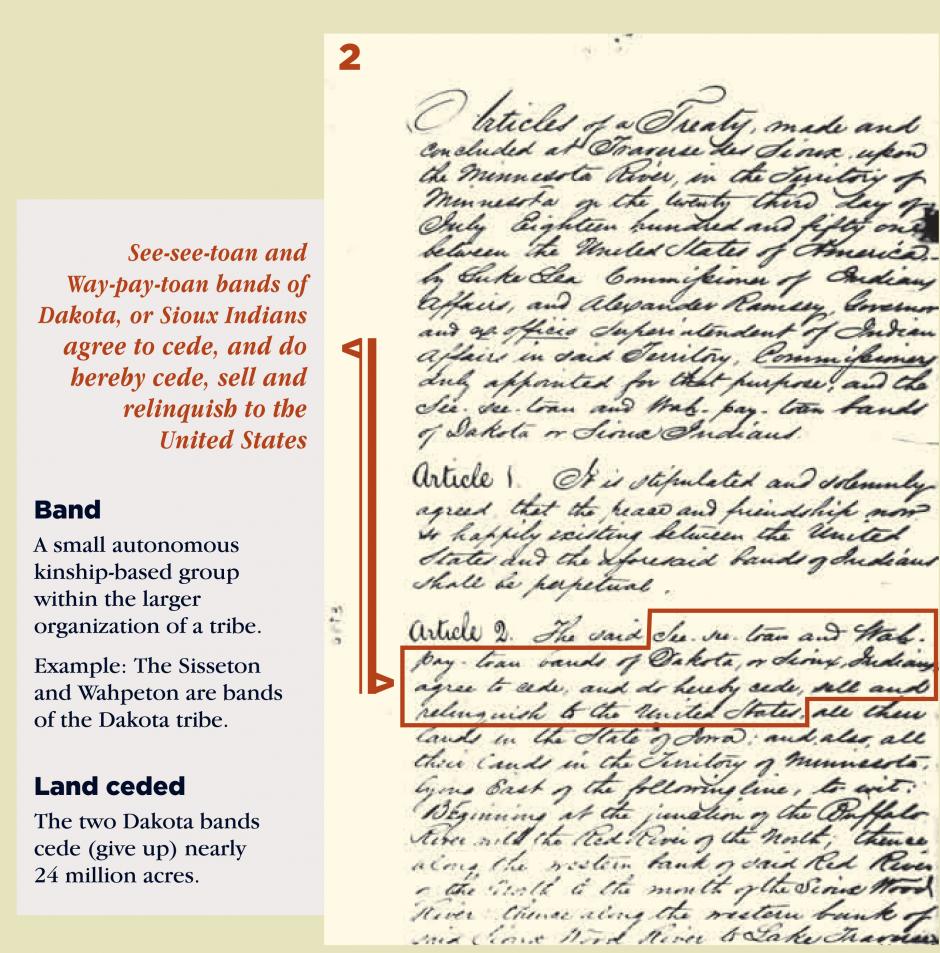 2
See-see-toan and
Way-pay-toan bands of
Dakota, or Sioux Indians
agree to cede, and do
hereby cede, sell and
relinquish to the
United States
Band
A small autonomous
kinship-based group
within the larger
organization of a tribe.
Example: The Sisseton
and Wahpeton are bands
of the Dakota tribe.
Land ceded
The two Dakota bands
cede (give up) nearly
24 million acres.
Articles of a Treaty, made and
concluded at Traverse des Sioux, upon
the Minnesota River, in the Territory of
Minnesota on the twenty third day of
July Eighteen hundred and fifty one,
between the United States of America,
by Luke Lea Commissioner of Indian
Affairs, and Alexander Ramsey, Governor
and ex officio Superintendent of Indian
Affairs in said Territory, Commissioners
duly appointed for that purpose, and the
See-see-toan and Wah-pay-toan bands
of Dakota or Sioux Indians.
Article 1. It is stipulated and solemnly
agreed, that the peace and friendship now
so happily existing between the United
States and the aforesaid bands of Indians
shall be perpetual.
Article 2. The said See-see-toan and Wah-
pay-toan bands of Dakota, or Sioux Indians,
agree to cede, and do hereby cede, sell and
relinquish to the United States, all their
lands in the State of Iowa; and, also, all
their lands in the Territory of Minnesota,
lying East of the following line, to wit:
Beginning at the junction of the Buffalo
River with the Red River of the North; thence
along the western bank of said Red River
of the North to the mouth of the Sioux Wood
River; thence along the western bank of
said Sioux Wood River to Lake Traverse